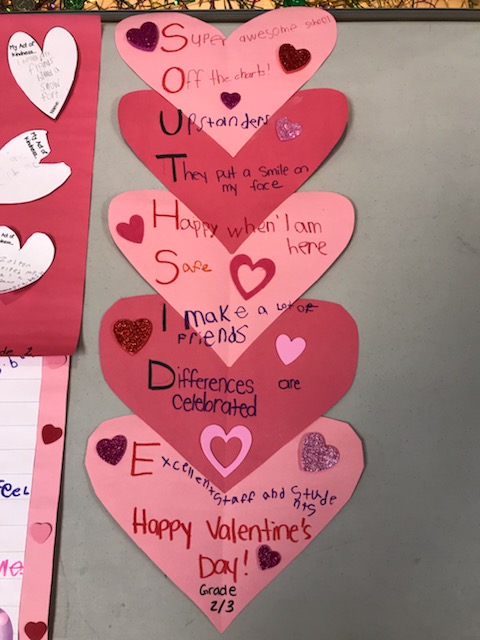 Super awesome school
Off the charts!
Upstanders
They put a smile on
my face
Happy when I am
here
Safe
I make a lot of
friends
Differences are
celebrated
Excellent staff and stude
nts
Happy Valentine's
Day!
Grade
2/3
My Act of
kindness...
My Act of
kindness...
Act of
kindness...